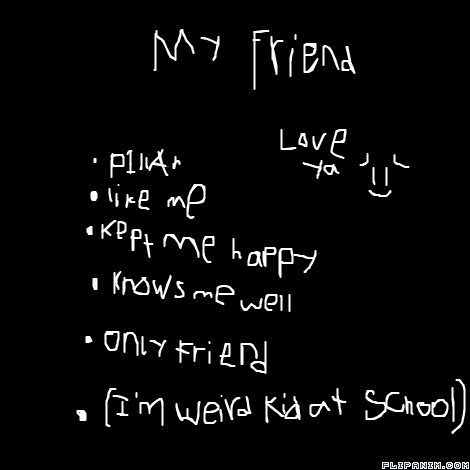 My friend
Love
ya
• pillar
• like me
• kept me happy
• knows me well
• only friend
• (I'm weird kid at school)
FLIPANIM.COM